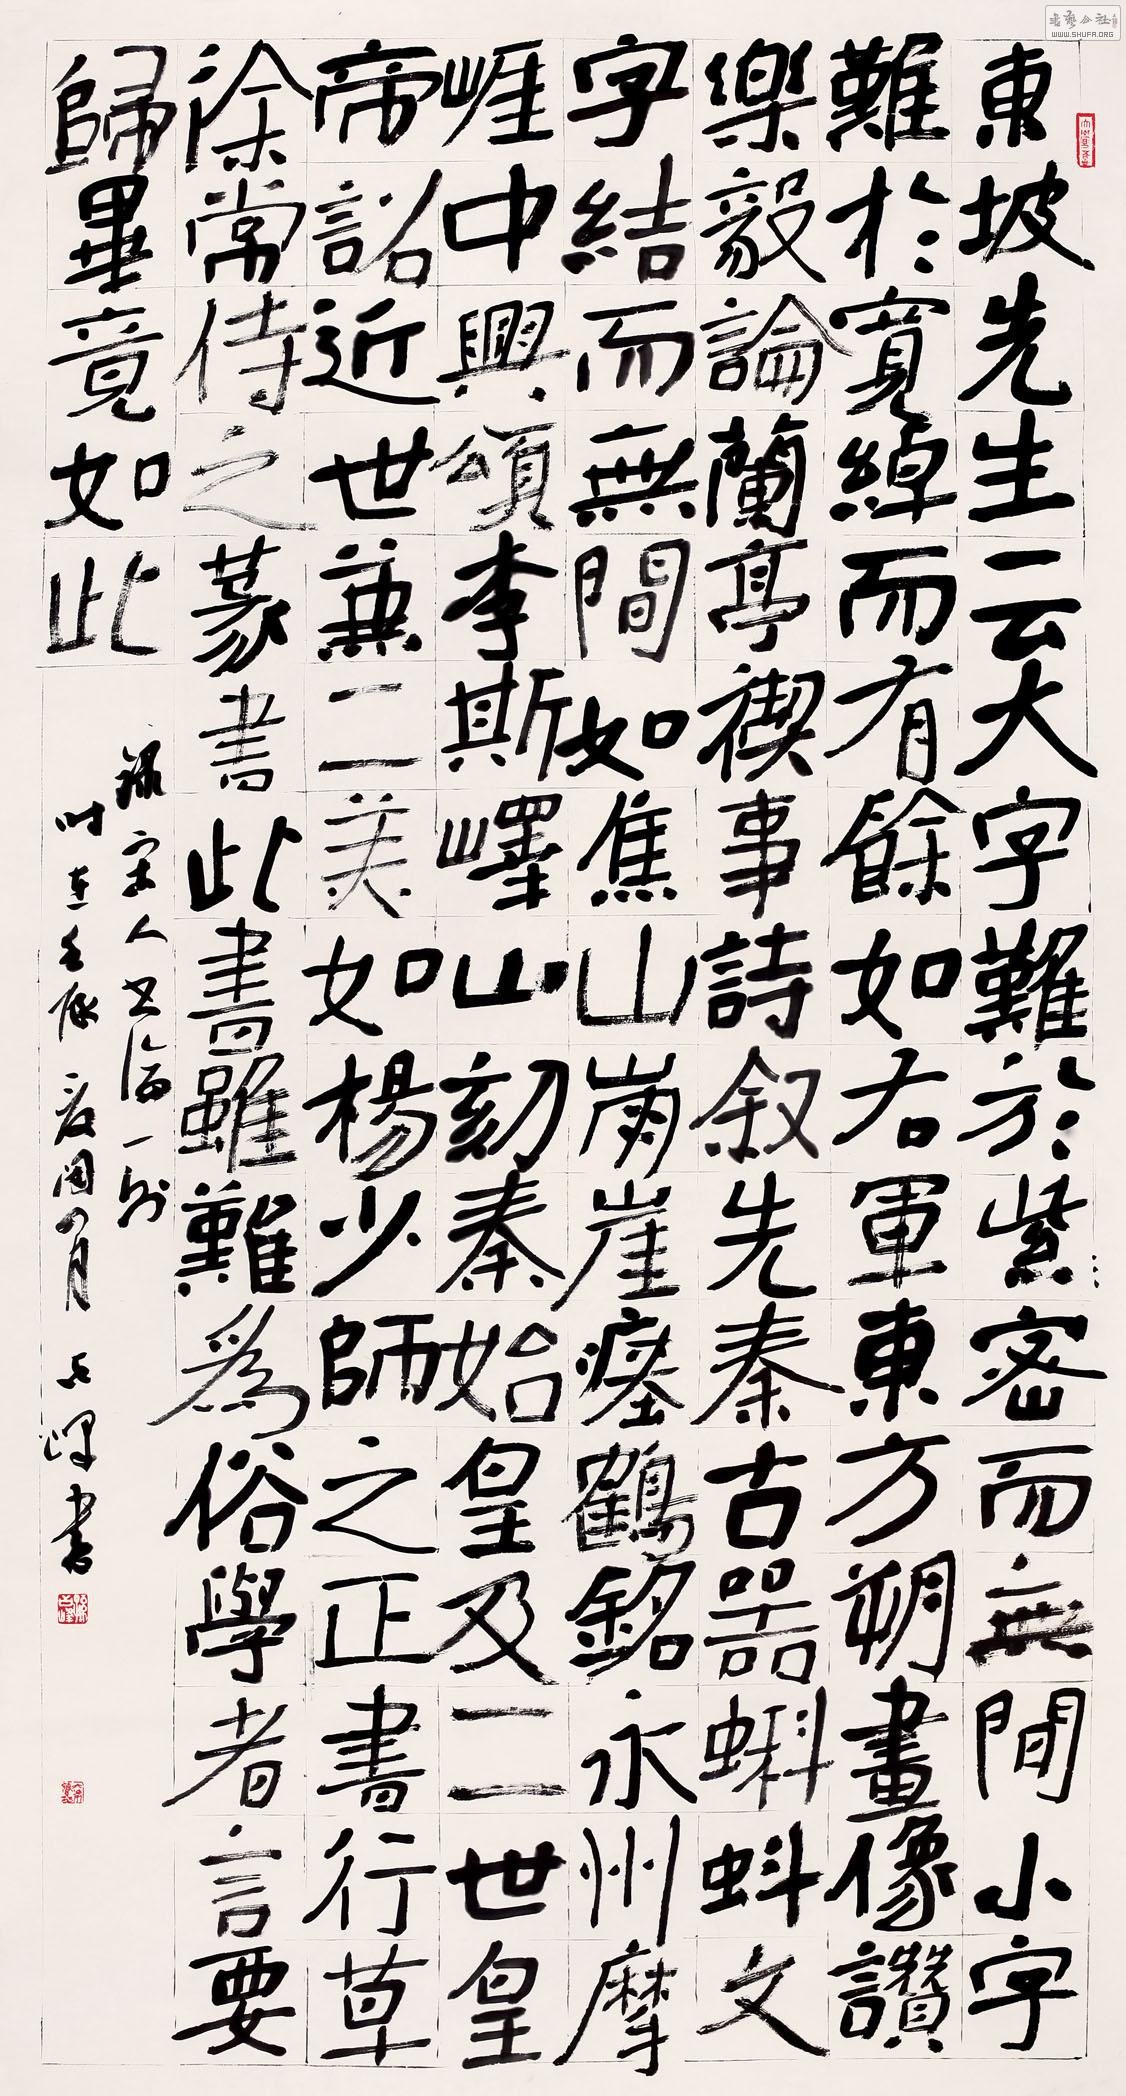 東坡先生云大字難於紫密而無間小字
難於寬綽而有餘如右軍東方朔畫像讚
樂毅論蘭亭禊事詩叙先秦古器蝌蚪文
字結而無間如焦山崗崖瘞鶴銘永州摩
崕中興頌李斯嶧山刻秦始皇及二世皇
帝詔近世兼二美如楊少師之正書行草
徐常侍之篆書此書雖難爲俗學者言要
歸畢竟如此
錄宋人书論一則
时在壬辰夏閏四月書
书艺公社
WWW.SHUFA.ORG